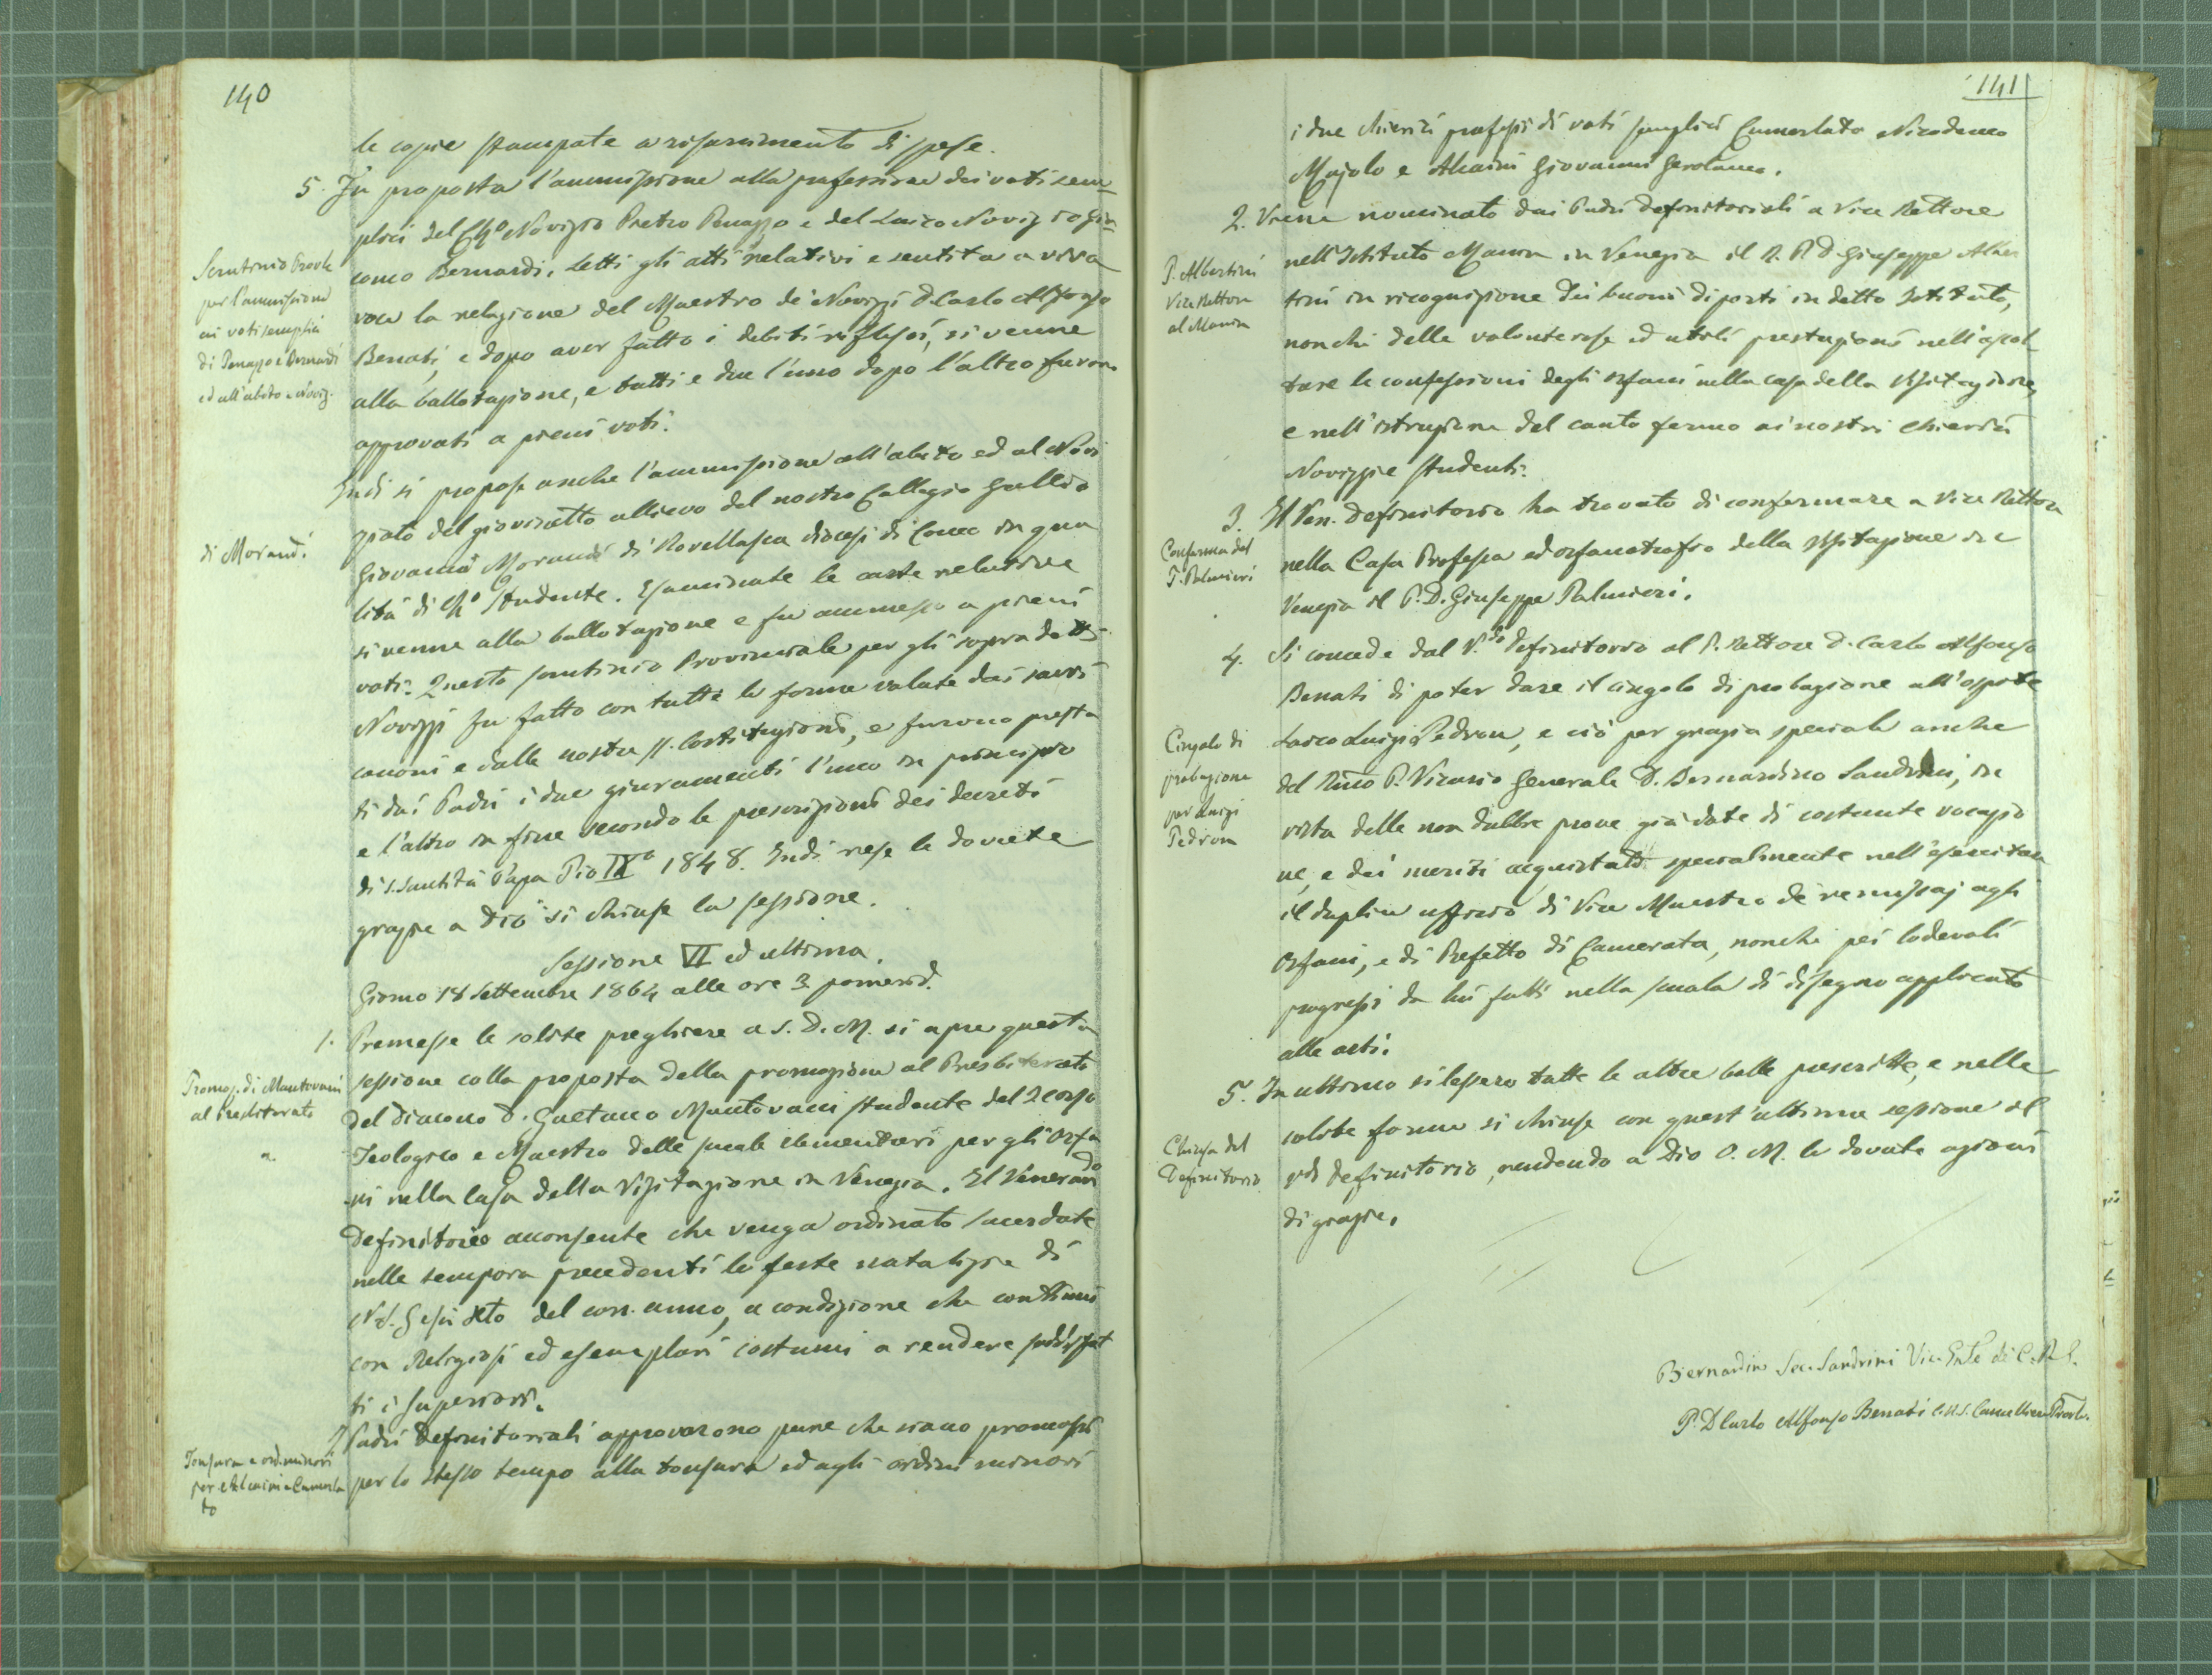 140
le copie stampate a risarcimento di spese.
5. Fu proposta l'ammissione alla professione dei voti sem
plici del Ch.º Novizio Pietro Panazzo e del Laico Novizio Gia
como Bernardi. Letti gli atti relativi e sentita a viva
voce la relazione del Maestro de' Novizi D. Carlo Alfonso
Benati, e dopo aver fatto i debiti riflessi, si venne
alla ballotazione, e tutti e due l'uno dopo l'altro furono
approvati a pieni voti.
Scrutinio Provle
per l'ammissione
ai voti semplici
di Panazzo e Bernardi
ed all'abito e Noviz.
Indi si propose anche l'ammissione all'abito ed al Novi
ziato del giovinetto allievo del nostro Collegio Gallio
Giovanni Morandi di Rovellasca diocesi di Como in qua
lità di Ch.º Studente. Esaminate le carte relative
si venne alla ballotazione e fu ammesso a pieni
voti. Questo scrutinio Provinciale per gli sopradetti
Novizzi fu fatto con tutte le forme volute dai sacri
canoni e dalle nostre SS. Costituzioni, e furono presta
ti dai Padri i due giuramenti l'uno in principio
e l'altro in fine secondo le prescrizioni dei decreti
di S. Santità Papa Pio IXº 1848. Indi rese le dovute
grazie a Dio si chiuse la sessione.
di Morandi
Sessione VI ed ultima.
Giorno 18 Settembre 1864 alle ore 3 pomerid.
1. Premesse le solite preghiere a S. D. M. si apre questa
sessione colla proposta della promozione al Presbiterato
del Diacono D. Gaetano Mantovani studente del 2 corso
Teologico e Maestro delle scuole elementari per gli Orfa
ni nella Casa della Visitazione in Venezia. Il Venerando
Definitorio acconsente che venga ordinato sacerdote
nelle tempora precedenti le feste natalizie di
N. S. Gesù Xto del corr. anno, a condizione che continui
con Religiosi ed esemplari costumi a rendere soddisfat
ti i Superiori.
Promoz. di Mantovani
al Presbiterato
I Padri Definitoriali approvarono pure che siano promossi
per lo stesso tempo alla tonsura ed agli ordini minori
Tonsura e ord. minori
per Alcaini e Cumerla
to
141
i due chierici professi di voti semplici Cumerlato Nicodemo
Majolo e Alcaini Giovanni Gerolamo.
2. Viene nominato dai Padri Definitoriali a Vice Rettore
nell'Istituto Manin in Venezia il R. P. D. Giuseppe Alber
tini in ricognizione dei buoni diporti in detto Istituto,
nonchè delle volonterose ed utili prestazioni nell'ascol
tare le confessioni degli orfani nella casa della Visitazione,
e nell'istruzione del canto fermo ai nostri chierici
Novizzi e studenti.
P. Albertini
Vice Rettore
al Manin
3. Il Ven. Definitorio ha trovato di confermare a Vice Rettore
nella Casa Professa ed orfanotrofio della Visitazione in
Venezia il P. D. Giuseppe Palmieri.
Conferma del
P. Palmieri
4. Si concede dal V.do Definitorio al P. Rettore D. Carlo Alfonso
Benati di poter dare il cingolo di probazione all'ospite
Laico Luigi Pedron, e ciò per grazia speciale anche
del Rmo P. Vicario Generale D. Bernardino Sandrini, in
vista delle non dubbie prove già date di costante vocazio
ne, e dei meriti acquistati specialmente nell'esercitare
il duplice uffizio di Vice Maestro de' remissaj agli
Orfani, e di Prefetto di Camerata, nonchè pei lodevoli
progressi da lui fatti nella scuola di disegno applicato
alle arti.
Cingolo di
probazione
per Luigi
Pedron
5. In ultimo si lessero tutte le altre bolle prescritte, e nelle
solite forme si chiuse con quest'ultima sessione il
Vdo Definitorio, rendendo a Dio O. M. le dovute azioni
di grazie.
Chiusa del
Definitorio
Bernardin Sec. Sandrini Vic. Gnle de' C. R. S.
P. D. Carlo Alfonso Benati C. R. S. Cancelliere Provle.